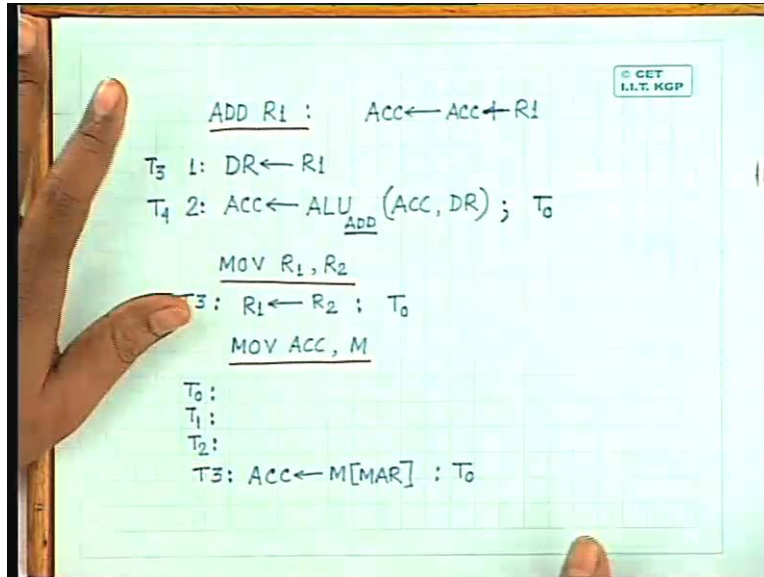 © CET
I.I.T. KGP
ADD R1 : ACC ← ACC + R1
T3 1: DR ← R1
T4 2: ACC ← ALU ADD (ACC, DR) ; T0
MOV R1, R2
T3: R1 ← R2 ; T0
MOV ACC, M
T0:
T1:
T2:
T3: ACC ← M[MAR] : T0